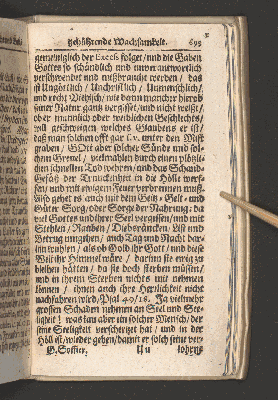 gehöhrende Wachsamkeit. 695
gemeiniglich der Exceß folget/ und die Gaben
Gottes so schändlich und unverantwortlich
verschwendet und mißbraucht werden / das
ist Ungöttlich / Unchristlich / Unmenschlich/
und recht Viehisch, wie dann mancher hierob
seiner Natur gantz vergisst/ und nicht weißt/
ob er männlich oder weiblichen Geschlechts/
will geschweigen welches Glaubens er ist/
das man solchen offt gar unter den Mist
graben / GOtt aber solcher Sünde und sol-
chem Greuel / vielmahlen durch einen plötzli-
chen schnellen Tod wehren/ und das Schand-
Gefäß der Trunckenheit in die Höll werf-
fen/ und mit ewigem Feuer verbrennen muß.
Also gehet es auch mit dem Geitz- Gelt- und
Güter Sorg/ oder Sorge der Nahrung: da
viel Gottes und ihrer Seel vergissen/ sich mit
Stehlen/ Rauben/ Diebsräncken/ List und
Betrug umgehen/ auch Tag und Nacht dar-
inn wühlen/ als ob Gold ihr Gott / und diese
Welt ihr Himmel wäre/ darinn sie ewig zu
bleiben hätten/ da sie doch sterben müssen/
und in ihrem Sterben nichts mit nehmen
können / ihnen auch ihre Herrlichkeit nicht
nachfahren wird/ Psal. 49/18. Ja vielmehr
grossen Schaden nehmen an Seel und See-
ligkeit! was kan aber ein solcher Mensch/ der
seine Seeligkeit verschertzet hat / und in der
Höll ist/ wieder geben/ damit er solch seine ver-
Uu lohrne